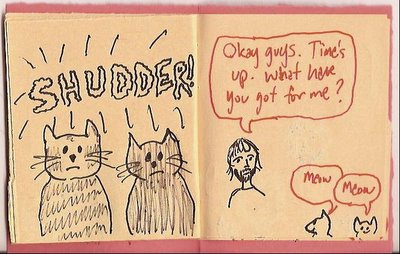 SHUDDER!
Okay guys. Time's
up. What have
you got for me?
Meow
Meow